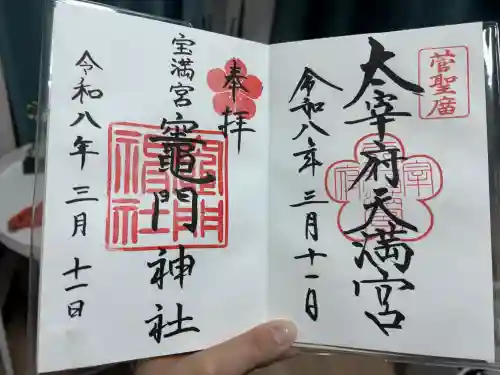 菅聖廟
太宰府天満宮
令和八年三月十一日
奉拝
宝満宮竈門神社
令和八年三月十一日